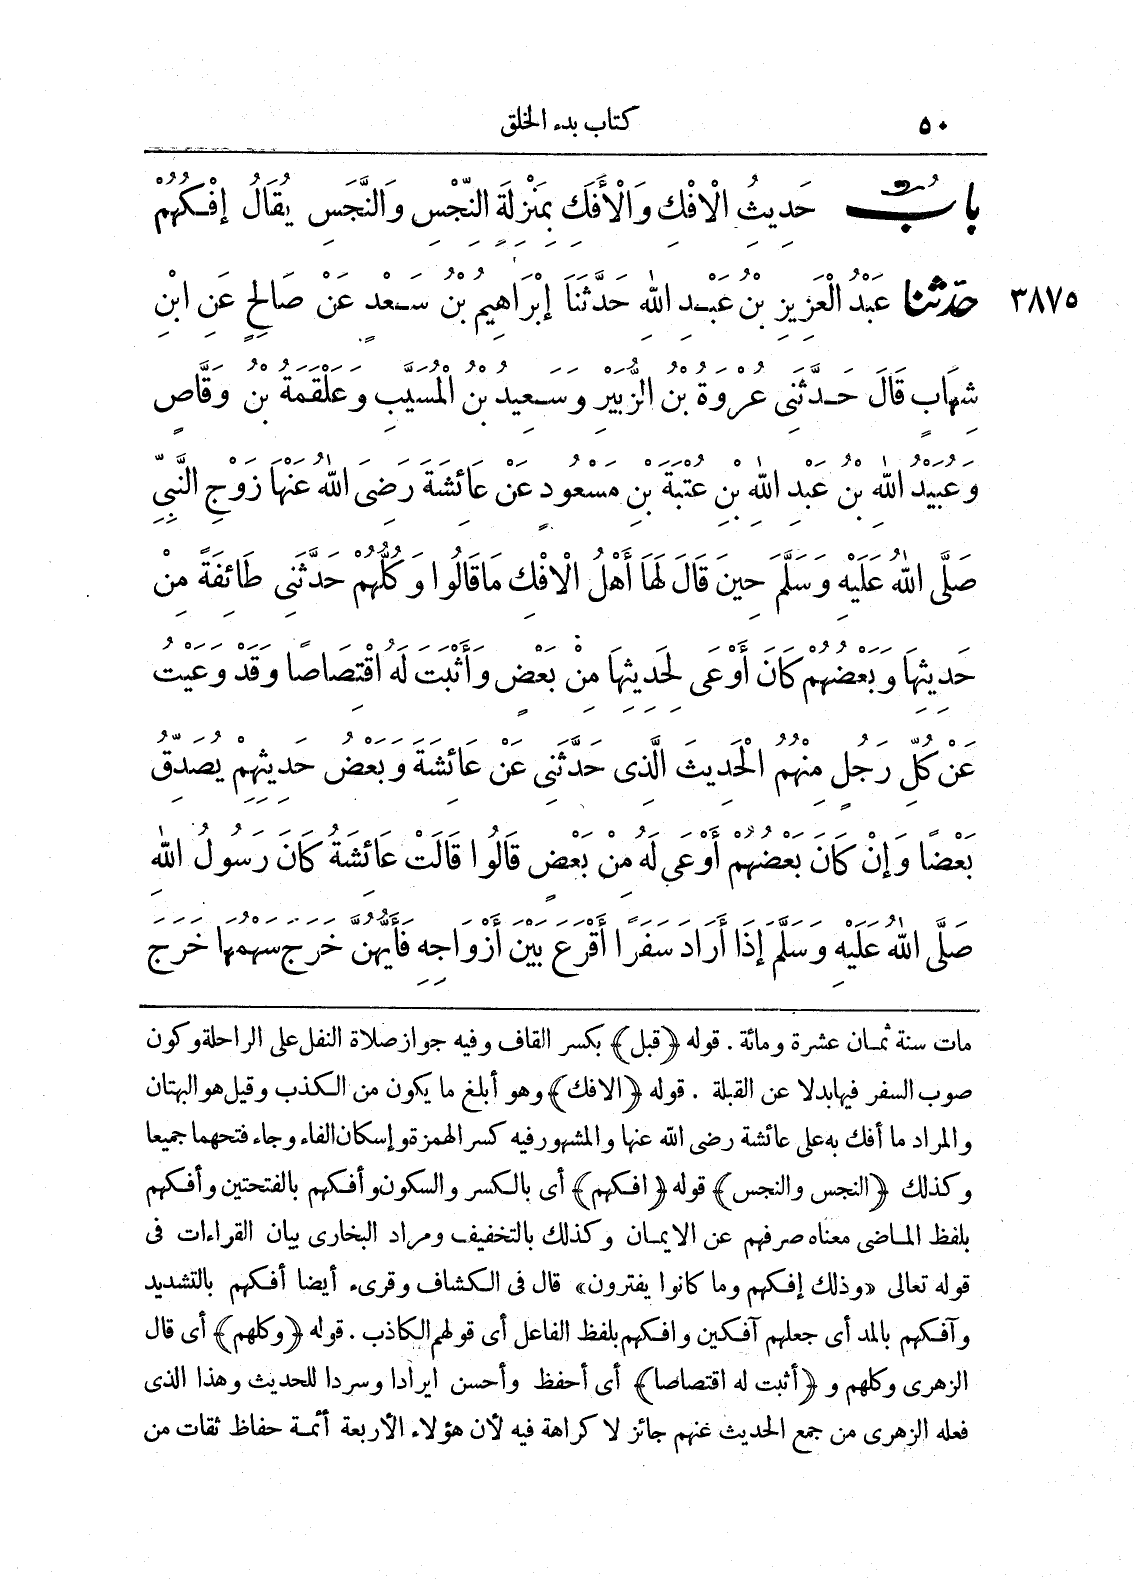 ٥٠ كتاب بدء الخلق
بابُ حَدِيثُ الْافْكِ وَالْأَفَكِ بِمَنْزِلَةِ النِّجْسِ وَالنَّجَسِ يُقَالُ إِفْكُهُمْ
٣٨٧٥ حدّثنا عَبْدُ الْعَزِيزِ بْنُ عَبْدِ اللهِ حَدَّثَنَا إِبْرَاهِيمُ بْنُ سَعْدٍ عَنْ صَالِحٍ عَنِ ابْنِ
شِهَابٍ قَالَ حَدَّثَنِى عُرْوَةُ بْنُ الزُّبَيْرِ وَسَعِيدُ بْنُ الْمُسَيَّبِ وَعَلْقَمَةُ بْنُ وَقَّاصٍ
وَعُبَيْدُ اللهِ بْنُ عَبْدِ اللهِ بْنِ عُتْبَةَ بْنِ مَسْعُودٍ عَنْ عَائِشَةَ رَضِىَ اللهُ عَنْهَا زَوْجِ النَّبِىِّ
صَلَّى اللهُ عَلَيْهِ وَسَلَّمَ حِينَ قَالَ لَهَا أَهْلُ الْافْكِ مَا قَالُوا وَكُلُّهُمْ حَدَّثَنِى طَائِفَةً مِنْ
حَدِيثِهَا وَبَعْضُهُمْ كَانَ أَوْعَى لِحَدِيثِهَا مِنْ بَعْضٍ وَأَثْبَتَ لَهُ اقْتِصَاصًا وَقَدْ وَعَيْتُ
عَنْ كُلِّ رَجُلٍ مِنْهُمُ الْحَدِيثَ الَّذِى حَدَّثَنِى عَنْ عَائِشَةَ وَبَعْضُ حَدِيثِهِمْ يُصَدِّقُ
بَعْضًا وَإِنْ كَانَ بَعْضُهُمْ أَوْعَى لَهُ مِنْ بَعْضٍ قَالُوا قَالَتْ عَائِشَةُ كَانَ رَسُولُ اللهِ
صَلَّى اللهُ عَلَيْهِ وَسَلَّمَ إِذَا أَرَادَ سَفَرًا أَقْرَعَ بَيْنَ أَزْوَاجِهِ فَأَيُّهُنَّ خَرَجَ سَهْمُهَا خَرَجَ
مات سنة ثمان عشرة ومائة . قوله ﴿قبل﴾ بكسر القاف وفيه جواز صلاة النفل على الراحلة وكون
صوب السفر فيها بدلا عن القبلة . قوله ﴿الافك﴾ وهو أبلغ ما يكون من الكذب وقيل هو البهتان
والمراد ما أفك به على عائشة رضى الله عنها والمشهور فيه كسر الهمزة وإسكان الفاء وجاء فتحهما جميعا
وكذلك ﴿النجس والنجس﴾ قوله ﴿افكهم﴾ أى بالكسر والسكون وأفكهم بالفتحتين وأفكهم
بلفظ الماضى معناه صرفهم عن الايمان وكذلك بالتخفيف ومراد البخارى بيان القراءات فى
قوله تعالى «وذلك إفكهم وما كانوا يفترون» قال فى الكشاف وقرىء أيضا أفكهم بالتشديد
وآفكهم بالمد أى جعلهم آفكين وافكهم بلفظ الفاعل أى قولهم الكاذب . قوله ﴿وكلهم﴾ أى قال
الزهرى وكلهم و ﴿أثبت له اقتصاصا﴾ أى أحفظ وأحسن ايرادا وسردا للحديث وهذا الذى
فعله الزهرى من جمع الحديث عنهم جائز لا كراهة فيه لأن هؤلاء الأربعة أئمة حفاظ ثقات من